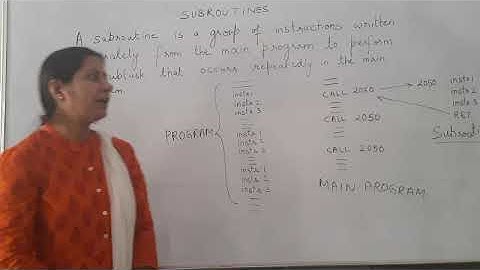 SUBROUTINES
A subroutine is a group of instructions written
from the main program to perform
that occurs repeatedly in the main
PROGRAM
inst1
inst 2
inst 3
inst 1
inst 2
inst 3
inst 1
inst 2
inst 3
CALL 2050
CALL 2050
CALL 2050
MAIN PROGRAM
2050 inst1
inst 2
inst 3
RET